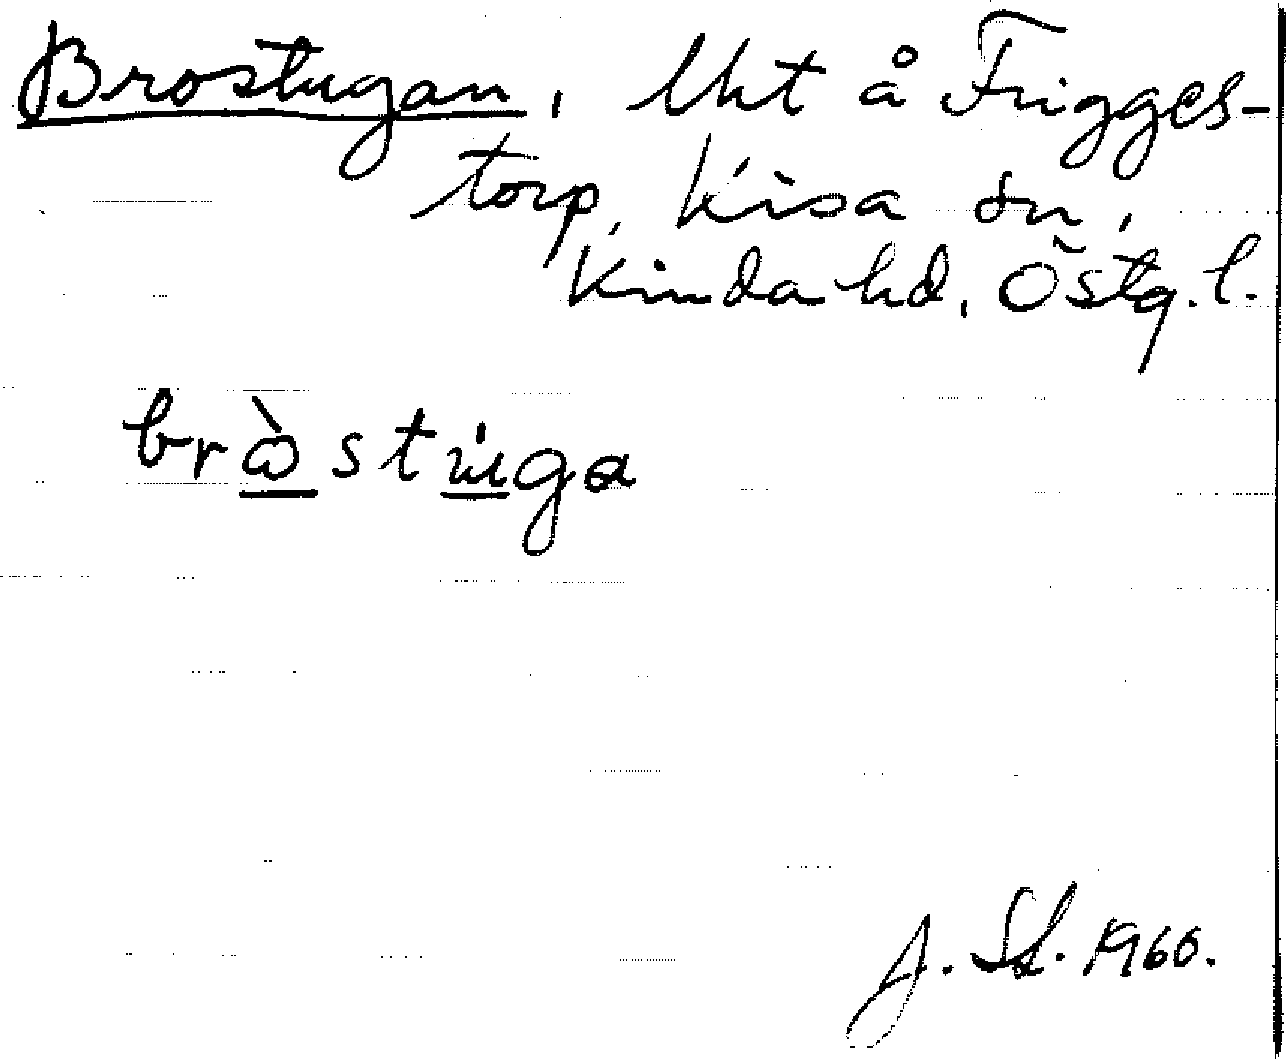 Brostugan, lht å Frigges-
torp, Kisa sn,
Kinda hd, Östg. l.
bròstúga
J. Sl. 1960.